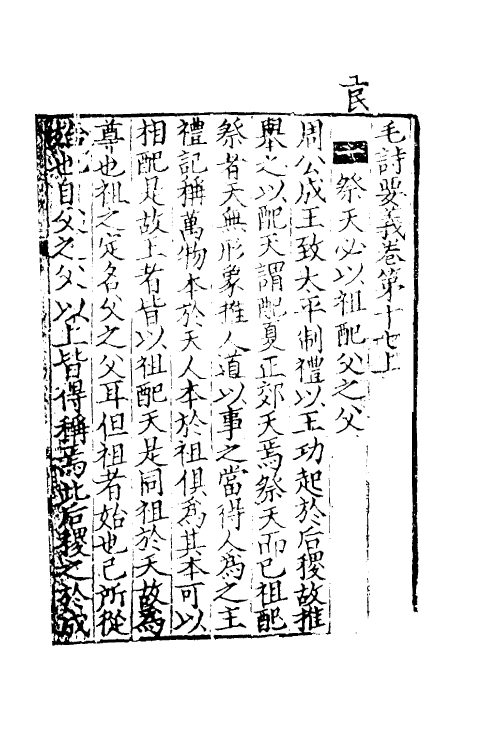 毛詩要義卷第十七上
祭天必以祖配父之父
周公成王致太平制禮以王功起於后稷故推
舉之以配天謂配夏正郊天焉祭天而已祖配
祭者天無形象推人道以事之當得人為之主
禮記稱萬物本於天人本於祖俱為其本可以
相配是故王者皆以祖配天是同祖於天故為
尊也祖之定名父之父耳但祖者始也己所從
始也自父之父以上皆得稱焉此后稷之於成